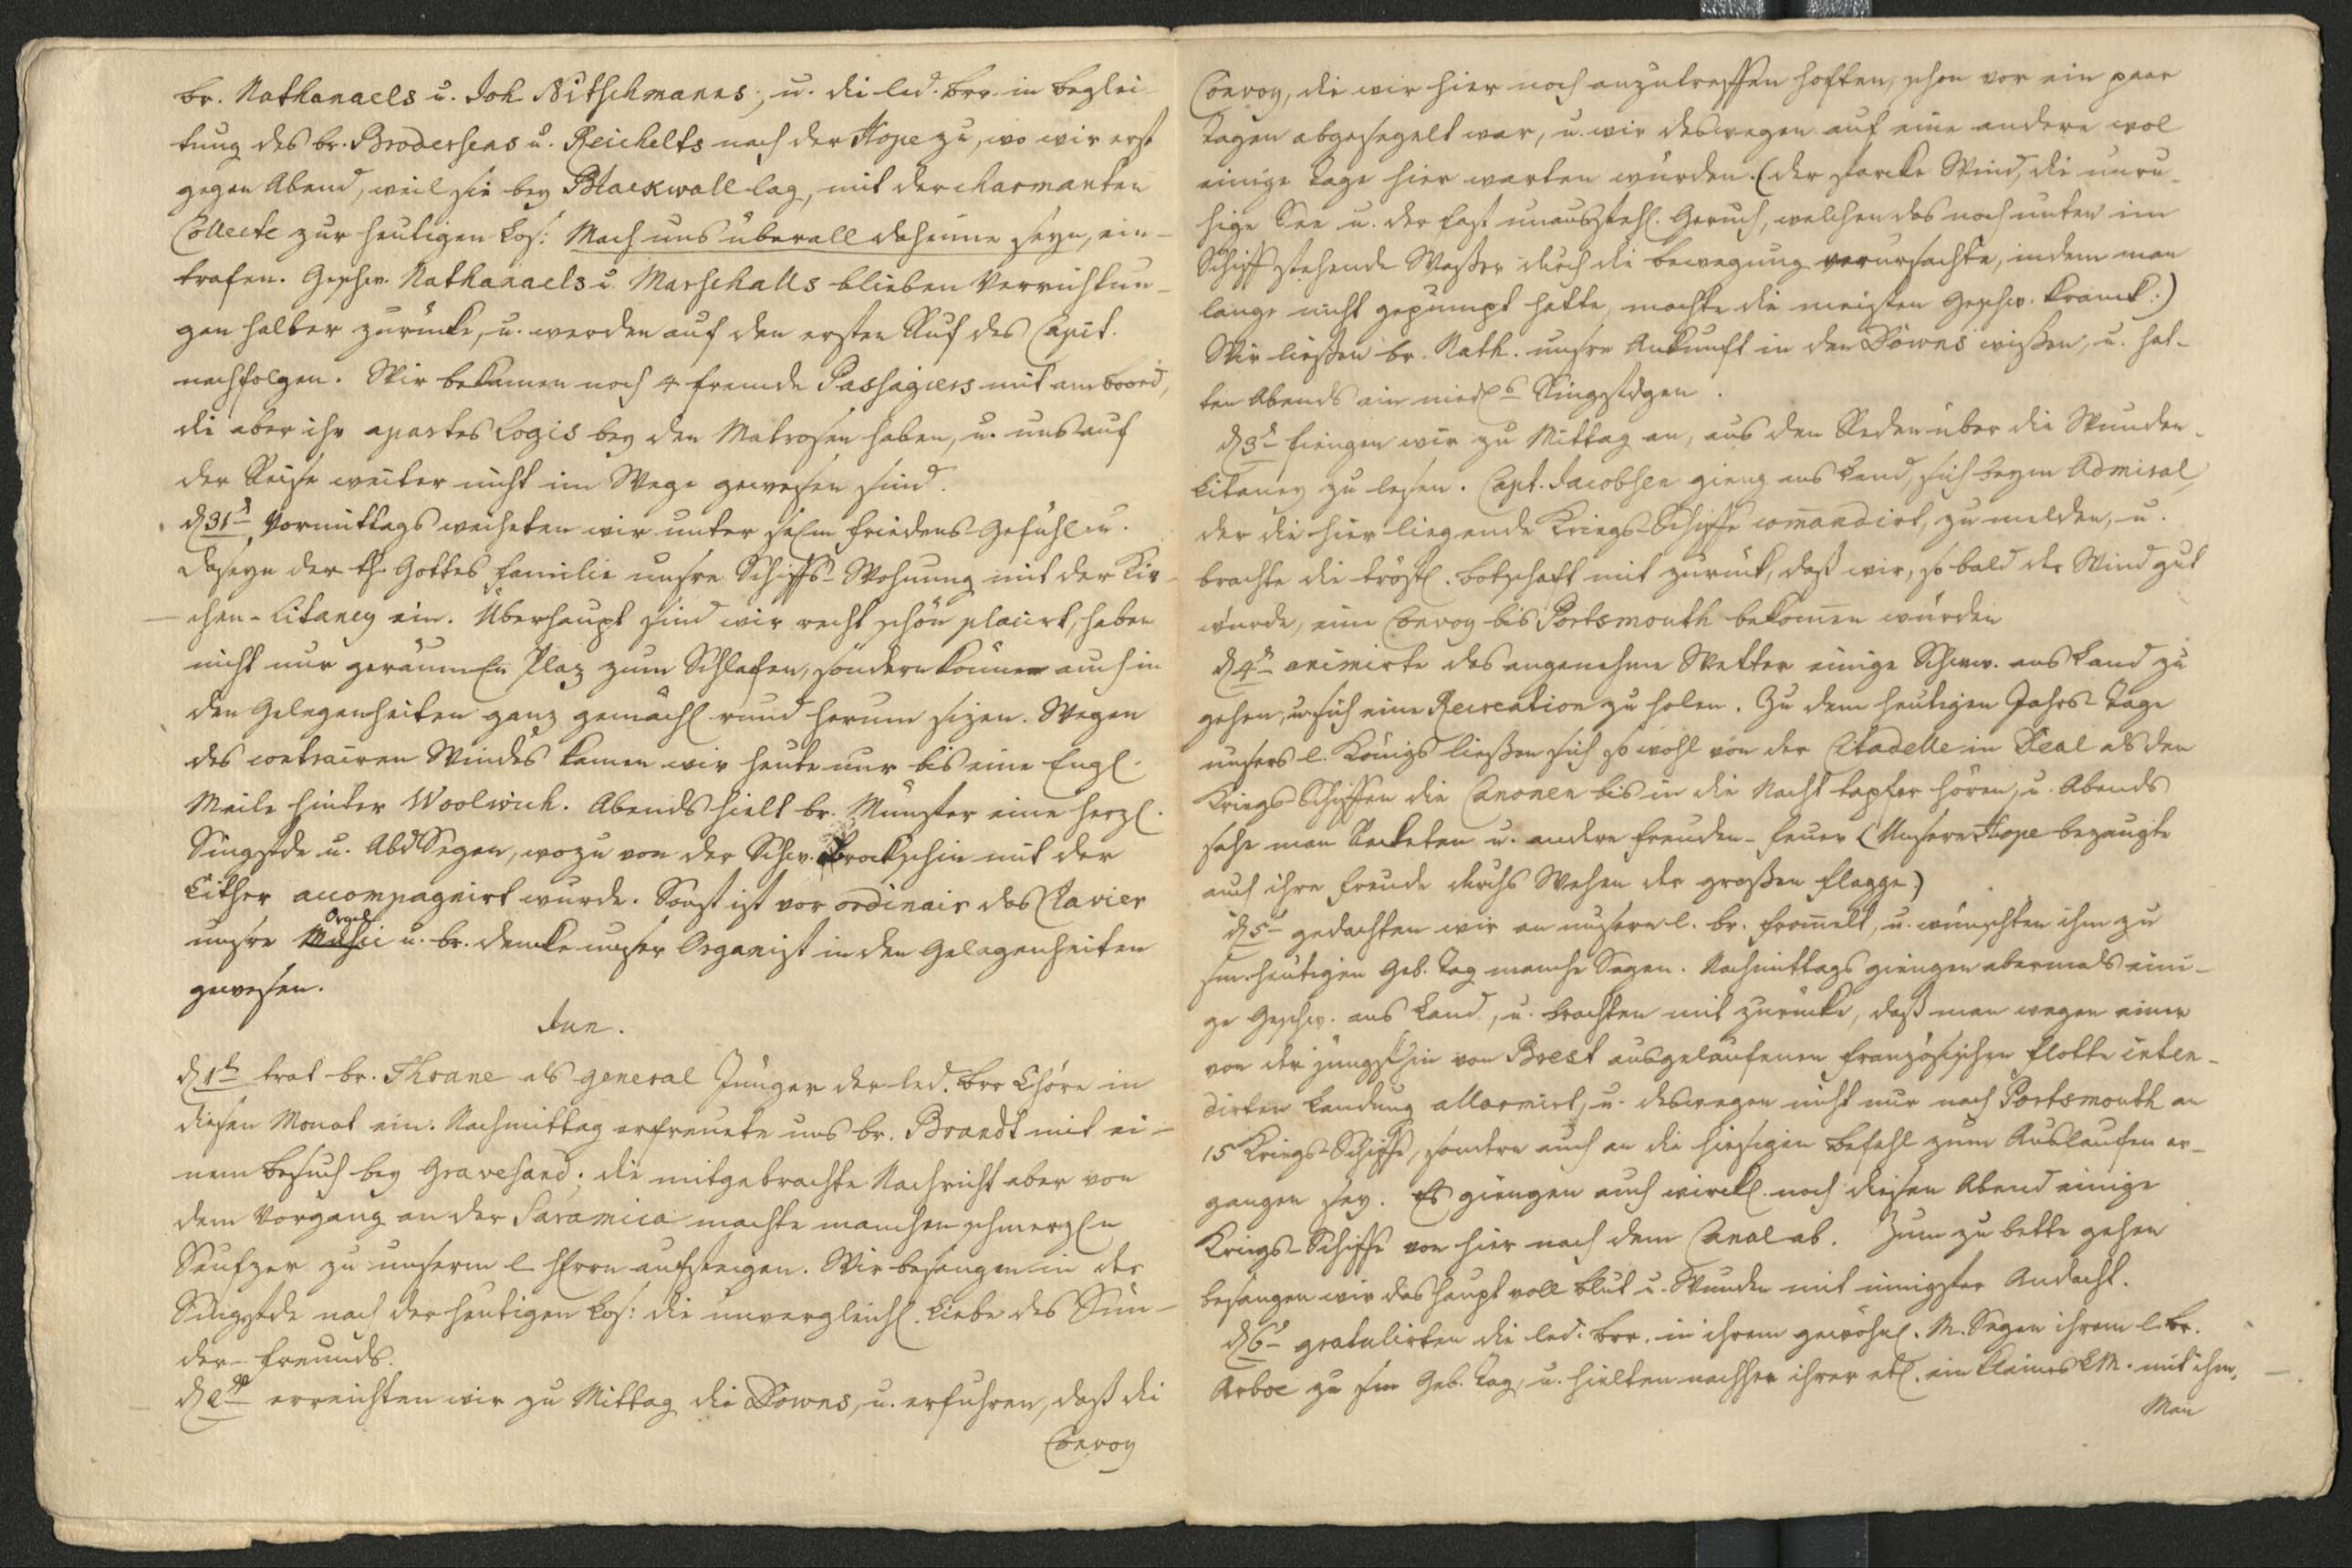 br. Nathanaels u. Joh Nitschmanns; u. die led. brr. in beglei-
tung des br. Brodersens u. Reichelts nach der Hope zu, wo wir erst
gegen Abend, weil sie bey Blackwall lag, mit der charmanten
Collecte zur heutigen Los: Mach uns überall daheime seyn, ein-
trafen. Geschw. Nathanaels u. Marschalls blieben Verrichtun-
gen halber zurücke, u. werden auf den ersten Ruf des Capit.
nachfolgen. Wir bekamen noch 4 fremde Passagiers mit am boord,
die aber ihr apartes Logis bey den Matrosen haben, u. uns auf
der Reise weiter nicht im Wege gewesen sind.
d 31t Vormittags weiheten wir unter sel.m Friedens-Gefühl u.
Daseyn der th. Gottes Familie unsre Schiffs-Wohnung mit der Kir-
chen-Litaney ein. Überhaupt sind wir recht schön placirt, haben
nicht nur geräuml.n Plaz zum Schlafen, sondern können auch in
den Gelegenheiten ganz gemächl rund herum sizen. Wegen
des contrairen Windes kamen wir heute nur bis eine Engl.
Meile hinter Woolwich. Abends hielt br. Münster eine herzl.
Singstde u. AbdSegen, wozu von der Schw. Brockschin mit der
Cither accompagnirt wurde. Sonst ist vor ordinair das Clavier
unsre Orgel u. br. Dencke unser Organist in den Gelegenheiten
gewesen.
Jun.
d 1t trat br. Thrane als general Jünger der led. brr Chöre in
diesen Monat ein. Nachmittag erfreuete uns br. Brandt mit ei-
nem besuch bey Gravesand; die mitgebrachte Nachricht aber von
dem Vorgang an der Saramica machte manchen schmerzl.n
Seufzer zu unserm l HErrn aufsteigen. Wir besangen in der
Singstde nach der heutigen Los: die unvergleichl. Liebe des Sün-
der-Freunds.
d 2t erreichten wir zu Mittag die Downs, u. erfuhren, daß die
Convoy
Convoy, die wir hier noch anzutreffen hoften, schon vor ein paar
Tagen abgesegelt war, u. wir deswegen auf eine andere wol
einige Tage hier warten würden. (Der starcke Wind, die unru-
hige See u. der fast unausstehl. Geruch, welchen das noch unten im
Schiff stehende Waßer durch die bewegung verursachte, indem man
lange nicht gepumpt hatte, machte die meisten Geschw. kranck.)
Wir ließen br. Nath. unsre Ankunft in den Downs wißen, u. hat-
ten Abends ein niedl.s Singstdgen.
d 3t fiengen wir zu Mittag an, aus den Reden über die Wunden-
Litaney zu lesen. Capt. Jacobsen gieng ans Land, sich beym Admiral,
der die hier liegende Kriegs-Schiffe comandirt, zu melden, u.
brachte die tröstl. botschaft mit zurück, daß wir, so bald der Wind gut
würde, eine Convoy bis Portsmouth bekomen würden
d 4t animirte das angenehme Wetter einige Schww. ans Land zu
gehen, u. sich eine Recreation zu holen. Zu dem heutigen Jahrs-Tage
unsers l. Königs ließen sich so wohl von der Citadelle in Deal als den
Kriegs-Schiffen die Canonen bis in die Nacht tapfer hören, u. Abends
sahe man Racketen u. andere Freuden-Feuer (Unsere Hope bezeugte
auch ihre Freude durchs Wehen der großen Flagge.)
d 5t gedachten wir an unsern l. br. Fromelt, u. wünschten ihm zu
sm. heutigen Geb. Tag manche Segen. Nachmittags giengen abermals eini-
ge Geschw. ans Land, u. brachten mit zurücke, daß man wegen einer
von der jüngsthin von Brest ausgelaufenen französischen Flotte inten-
dirten Landung allarmirt, u. deswegen nicht nur nach Portsmouth an
15 Kriegs-Schiffe, sondern auch an die hiesigen Befehl zum Auslaufen er-
gangen sey. Es giengen auch wirckl. noch diesen Abend einige
Kriegs-Schiffe von hier nach dem Canal ab. Zum zu bette gehen
besangen wir das Haupt voll Blut u. Wunden mit innigster Andacht.
d 6t gratulirten die led. brr. in ihrem gewöhnl. M. Segen ihrem l. br.
Arboe zu sm Geb. Tag, u. hielten nachher ihrer etl. ein kleines LM. mit ihm.
Man